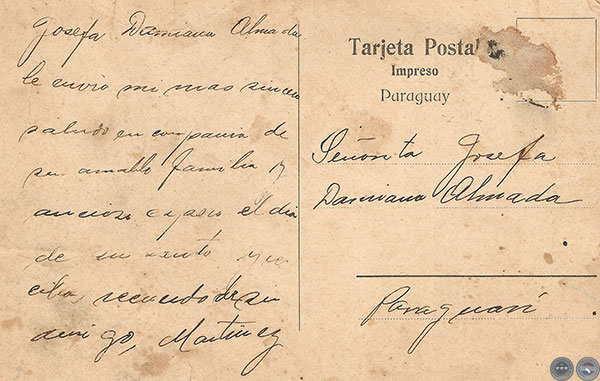 Josefa Damiana Almada
le envio mi mas sincero
saludo en compania de
su amable familia y
ancioso espero el dia
de su santo y re
ciba recuerdo de su
amigo, Martinez
Tarjeta Postal
Impreso
Paraguay
Señorita Josefa
Damiana Almada
Paraguarí